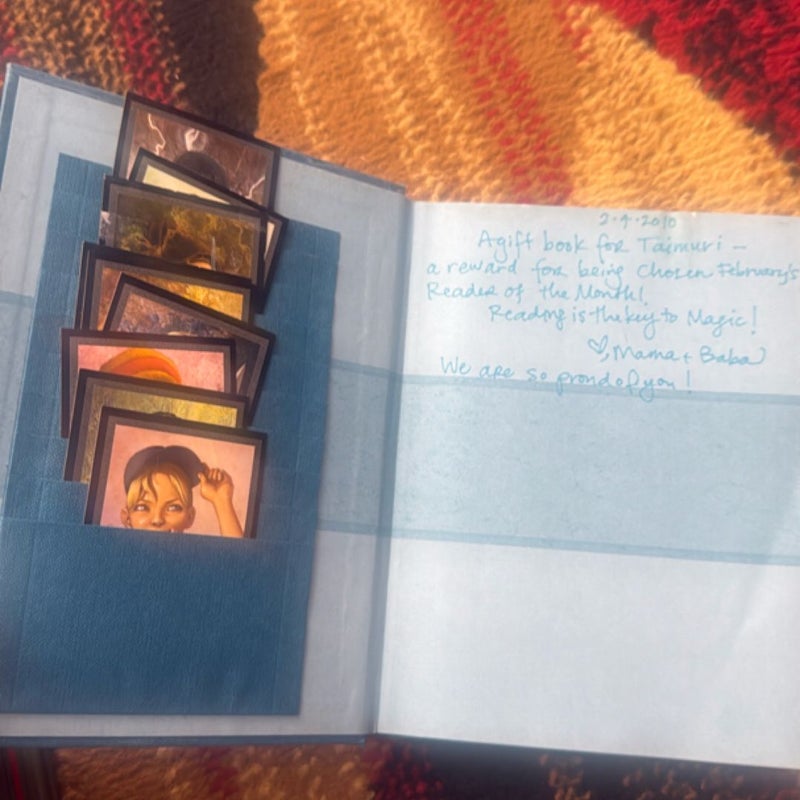 2·4·2010
A gift book for Taimuri –
a reward for being Chosen February's
Reader of the Month!
Reading is the key to Magic!
♡, Mama + Baba
We are so proud of you!